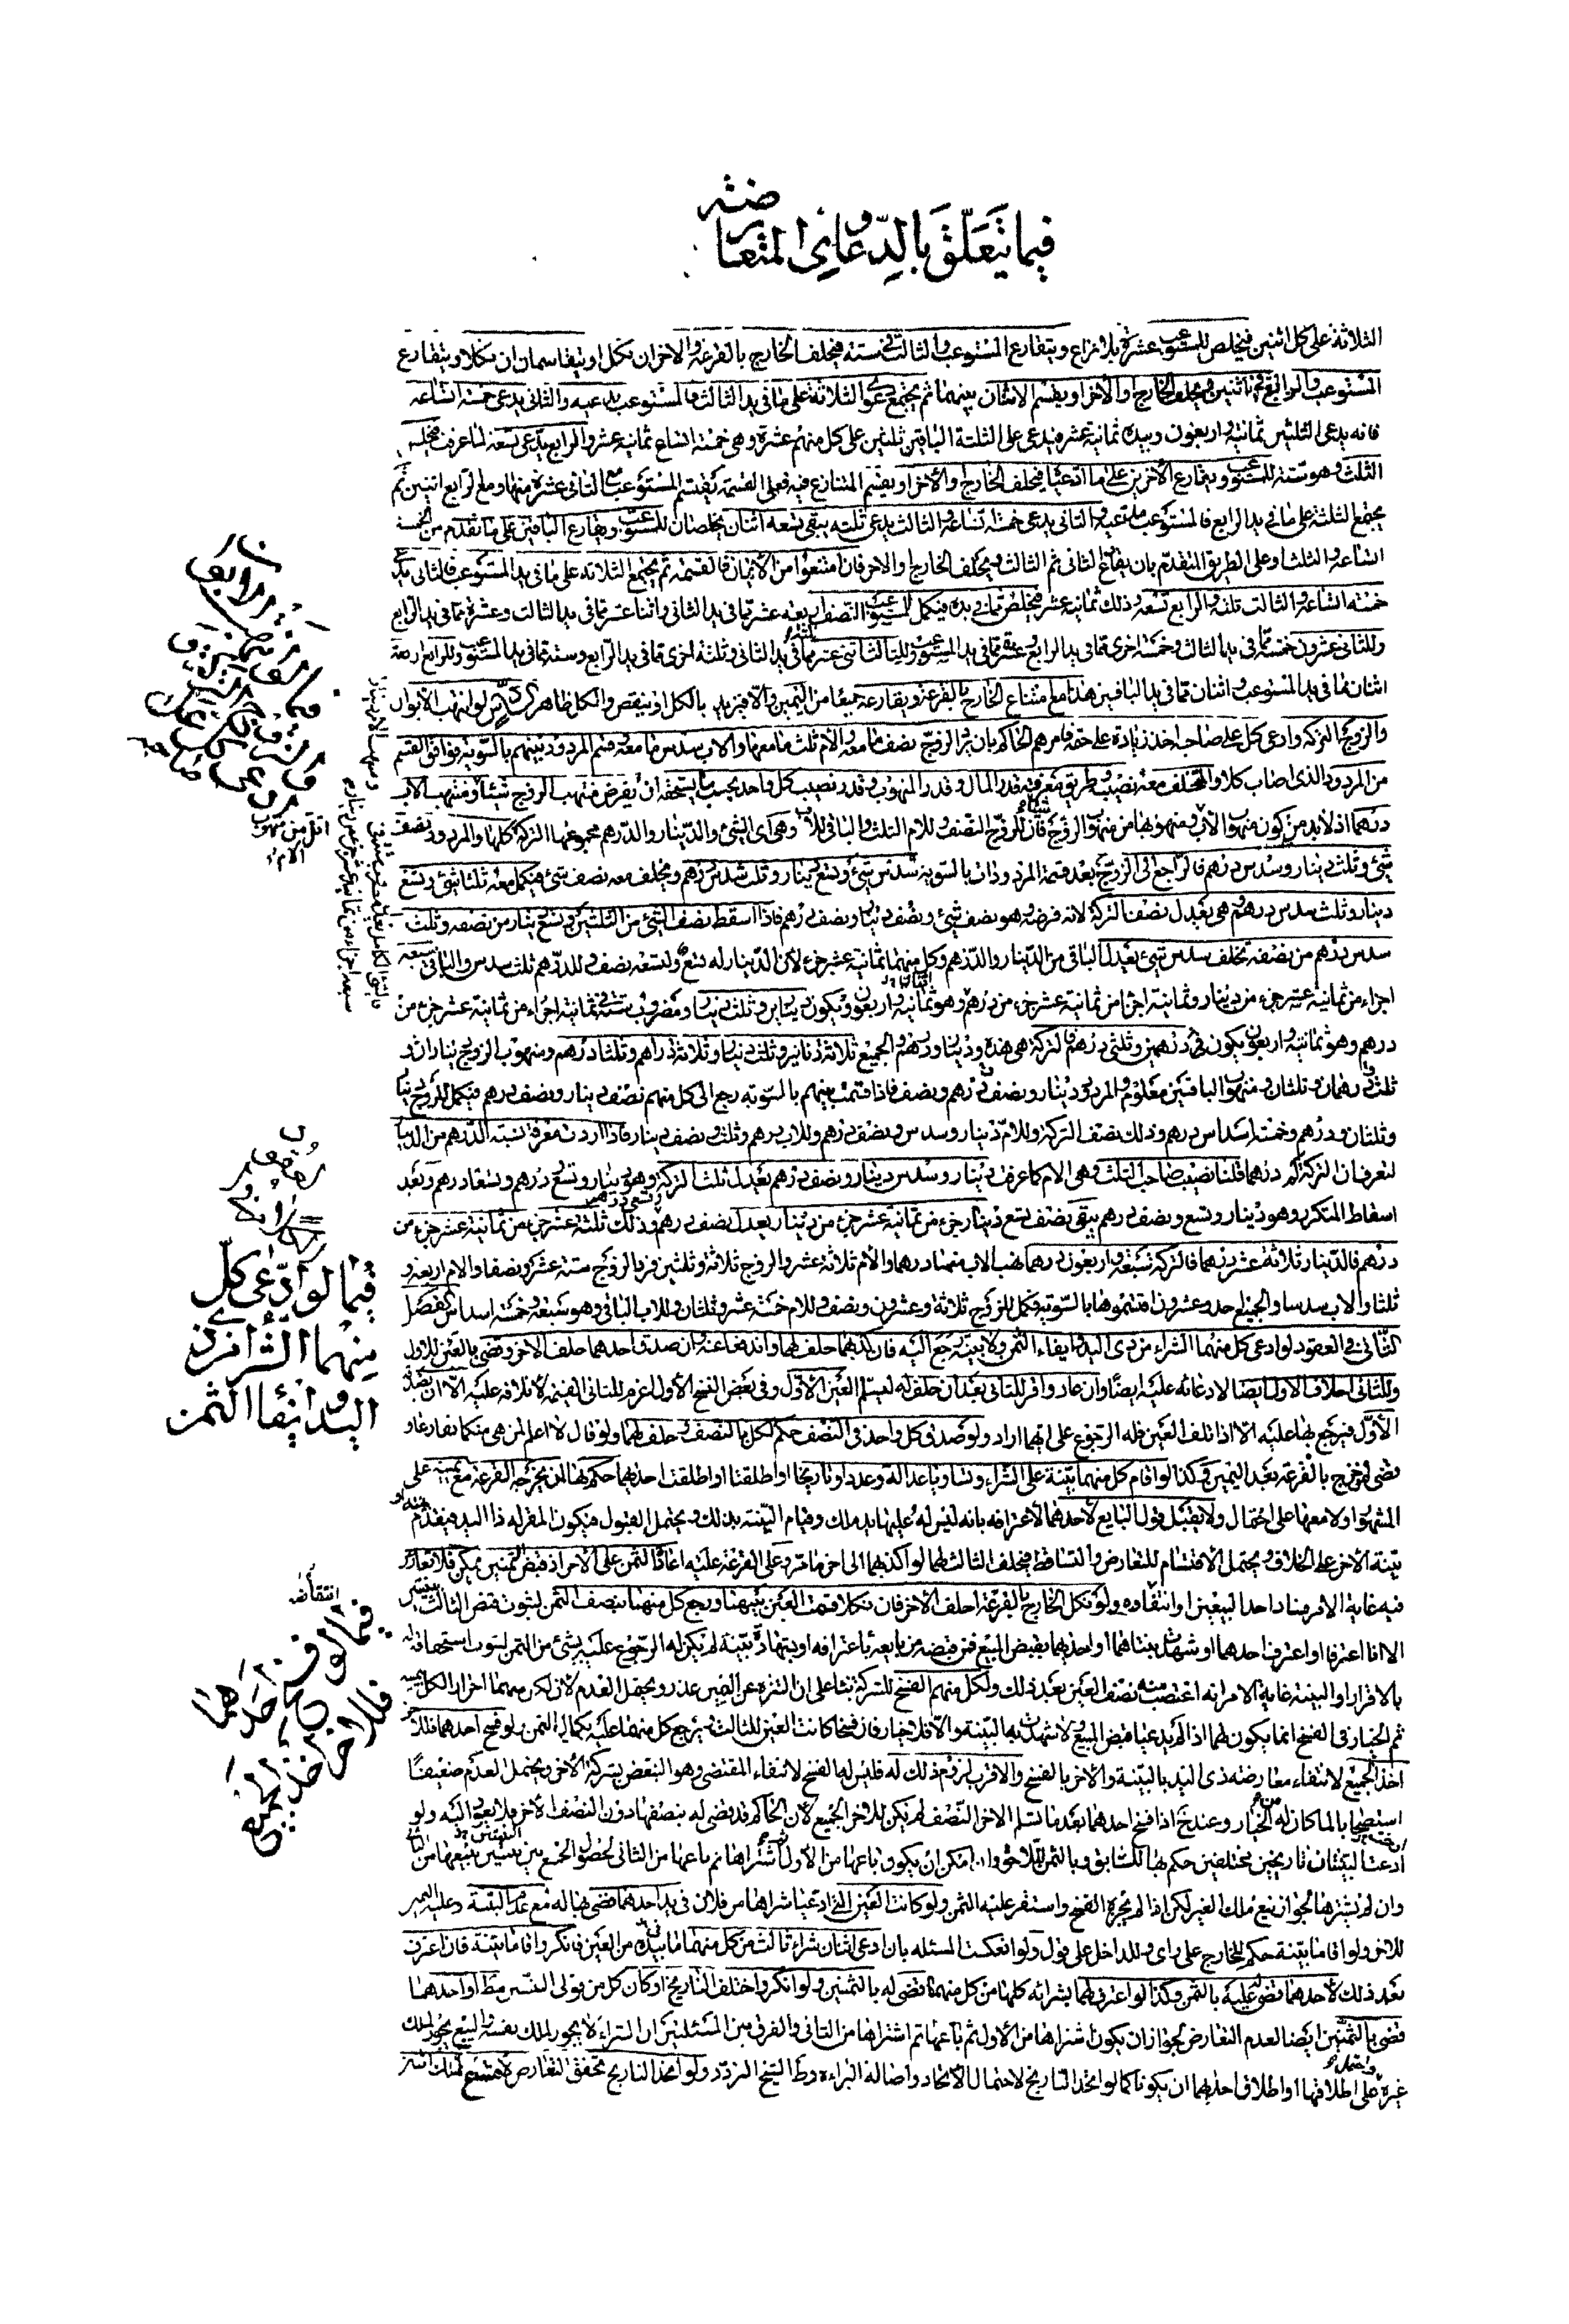 فيما يتعلق بالدعاوى المتعارضة
الثلاثة على كل اثنين فيخلص للمستوعب عشرة بلا نزاع ويتقارع المستوعب والثالث في ستة فيحلف الخارج بالقرعة والاخران نكل او يتقاسمان ان نكلا ويتقارع
المستوعب والرابع في اثنين ويحلف الخارج والاخر او يقسم الاثنان بينهما ثم يجتمع دعوى الثلاثة على ما في يد الثالث فالمستوعب يدعيه والثاني يدعى خمسة اتساعه
فانه يدعى الثلثين ثمانية واربعون وبيده ثمانية عشر فيدعى على الثلثة الباقين ثلثين على كل منهم عشرة وهي خمسة اتساع ثمانية عشر والرابع يدعى تسعة لما عرفت فيخلص
الثلث وهو ستة للمستوعب ويقارع الاخرين على ما ادعيا فيحلف الخارج والاخر او يقسم المتنازع فيه فعلى القسمة يقتسم المستوعب مع الثاني عشرة منهما ومع الرابع اثنين ثم
يجتمع الثلثة على ما في يد الرابع فالمستوعب يدعيه والثاني يدعى خمسة اتساعه والثالث يدعى ثلثه يبقى تسعه اثنان يخلصان للمستوعب ويقارع الباقين على ما تقدم من الخمسة
اتساعه والثلث او على الطريق المتقدم بان يقارع الثاني ثم الثالث ويحلف الخارج والاخر فان امتنعوا من الايمان فالقسمة ثم يجتمع الثلاثة على ما في يد المستوعب فالثاني يدعى
خمسة اتساعه والثالث ثلثه والرابع تسعه وذلك ثمانية عشر فيخلص مما في يده فيكمل للمستوعب النصف اربعة عشر مما في يد الثاني واثنا عشر مما في يد الثالث وعشرة مما في يد الرابع
وللثاني عشرون خمسة مما في يد الثالث وخمسة اخرى مما في يد الرابع وعشرة مما في يد المستوعب وللثالث اثنى عشر مما في يد الثاني وثلثة اخرى مما في يد الرابع وستة مما في يد المستوعب وللرابع اربعة
اثنان مما في يد المستوعب واثنان مما في يد الباقين هذا مع امتناع الخارج بالقرعة ويقارعه جميعا من اليمين والا فيزيد بالكل او ينقص والكل ظاهر لو انتهب الابوان
والزوج التركة وادعى كل على صاحبه اخذ زيادة على حقه فامرهم الحاكم بان يرد الزوج نصف ما معه والام ثلث ما معها والاب سدس ما معه وقسم المردود بينهم بالسوية فوافق القسم
من المردود الذي اصاب كلا والمتخلف معه نصيبه وطريق معرفة قدر المال وقدر المنهوب وقدر نصيب كل واحد بحسب ما يستحقه ان يفرض منتهب الزوج شيئا ومنتهب الاب
درهما اذ لا بد من كون منهوب الاب ومنهوبها من منهوب الزوج فان للزوج النصف وللام الثلث والباقي للاب وهي اي الشيء والدينار والدرهم مجموعها التركة كلها والمردود نصف
شيء وثلث دينار وسدس درهم فالراجع الى الزوج بعد قسمة المردودات بالسوية سدس شيء وتسع دينار وثلث سدس درهم ويخلف معه نصف شيء فيكمل معه ثلثا شيء وتسع
دينار وثلث سدس درهم هي يعدل نصف التركة لانه فرضه وهو نصف شيء ونصف دينار ونصف درهم فاذا اسقط نصف الشيء من الثلثين وتسع دينار من نصفه وثلث
سدس درهم من نصفه تخلف سدس شيء يعدل الباقي من الدينار والدرهم وكل منهما ثمانية عشر جزء لان الدينار له تسع ولتسعه نصف وللدرهم ثلث سدس والباقي سبعة
اجزاء من ثمانية عشر جزء من دينار وثمانية اجزاء من ثمانية عشر جزء من درهم
درهم وهو ثمانية واربعون يكون درهمين وثلثي درهم فالتركة هي هذه ودينار ودرهم والجميع ثلاثة دنانير وثلث دينار وثلاثة دراهم وثلثا درهم ومنهوب الزوج ديناران و
ثلث ودرهمان وثلثان ومنهوب الباقين معلوم والمردود دينار ونصف ودرهم ونصف فاذا قسمت بينهم بالسوية رجع الى كل منهم نصف دينار ونصف درهم فيكمل للزوج دينار
وثلثان ودرهم وخمسة اسداس درهم وذلك نصف التركة وللام دينار وسدس ونصف درهم وللاب درهم وثلث ونصف دينار فاذا اردت معرفة نسبة الدرهم من الدينار
لتعرف ان التركة كم درهما قلنا نصيب صاحب الثلث وهي الام كما عرفت دينار وسدس دينار ونصف درهم يعدل ثلث التركة وهو دينار وتسع درهم وتسعا درهم وبعد
اسقاط المتكرر وهو دينار وتسع ونصف درهم يبقى نصف تسع دينار جزء من ثمانية عشر جزء من دينار يعدل نصف درهم وذلك ثلثة عشر جزء من ثمانية عشر جزء من
درهم فالدينار ثلاثة عشر درهما فالتركة سبعة واربعون درهما نهب الاب منها درهما والام ثلاثة عشر والزوج ثلاثة وثلثين فرد الزوج ستة عشر ونصفا والام اربعة و
ثلثا والاب سدسا والجميع احد وعشرون اقتسموها بالسوية فيكمل للزوج ثلاثة وعشرون ونصف وللام خمسة عشر وثلثان وللاب الباقي وهو سبعة وخمسة اسداس الفصل
الثاني في العقود لو ادعى كل منهما الشراء من ذي اليد وايفاء الثمن ولا بينة رجع اليه فان كذبهما حلف لهما واندفعا عنه وان صدق احدهما حلف الاخر وقضى بالعين للاول
وللثاني احلاف الاول ايضا لادعائه عليه ايضا وان عاد واقر للثاني بعد ان حلف له ليسلم العين الاول وفي بعض النسخ الاول اغرم للثاني القيمة لاتلافه عليه الا ان يصدقه
الاول فيرجع بها عليه الا اذا تلف العين فله الرجوع على ايهما اراد ولو صدق كل واحد في النصف حكم لكل بالنصف وحلف لهما ولو قال لا اعلم لمن هي منكما تقارعا و
قضى لمن خرج بالقرعة بعد اليمين وكذا لو اقام كل منهما بينة على الشراء وتساويا عدالة وعددا وتاريخا او اطلقتا او اطلقت احديهما حكم بها لمن يخرجه القرعة مع يمينه على
المشهور او لا معها على احتمال ولا يقبل قول البايع لاحدهما لاعترافه بانه ليس له عليها يد ملك وقيام البينة بذلك ويحتمل القبول فيكون المقر له ذا اليد فيقدم بينته او
بينة الاخر على الخلاف ويحتمل الاقتسام للتعارض والتساقط فيحلف الثالث لهما لو اكذبهما الى اخر ما مر وعلى القرعة عليه اعادة الثمن على الاخر اذ قبض الثمنين ممكن فلا تعارض
فيه غاية الامر فساد احد البيعين او انتفاؤه ولو نكل الخارج بالقرعة احلف الاخر فان نكلا قسمت العين بينهما ويرجع كل منهما بنصف الثمن لثبوت قبض الثالث
الا اذا اعترفا او اعترف احدهما او شهدت بينتاهما او احديهما بقبض المبيع فمن قبضه من بايعه باعترافه او بشهادة بينته لم يكن له الرجوع عليه بشيء من الثمن لثبوت استحقاقه له
بالاقرار او البينة غاية الامر انه اغتصبت منه نصف العين بعد ذلك ولكل منهم الفسخ للشركة بناء على ان التنزه عن اليمين عذر ويحتمل العدم لان لكل منهما احراز الكل بيمينه
ثم الخيار في الفسخ انما يكون لهما اذا لم يدعيا قبض المبيع ولا شهدت به البينة والا فلا خيار فان فسخا كانت العين للثالث ويرجع كل منهما عليه بكمال الثمن ولو فسخ احدهما فللاخر
اخذ الجميع لانتفاء معارضة ذي اليد بالبينة والاخر بالفسخ والاقرب لزوم ذلك له فليس له الفسخ لانتفاء المقتضي وهو التبعض بشركة الاخر ويحتمل العدم ضعيفا
استصحابا لما كان له من الخيار وعند خ اذا فسخ احدهما بعد ما تسلم الاخر النصف لم يكن للاخر الجميع لان الحاكم قد قضى له بنصفها دون النصف الاخر فلا يعود اليه ولو
ادعت البينتان تاريخين مختلفين حكم بها للسابق وبالثمن للاحق وان امكن ان يكون باعها من الاول ثم اشتراها ثم باعها من الثاني
وان لم يشترها لجواز بيع ملك الغير لكن اذا لم يجزه انفسخ واستقر عليه الثمن ولو كانت العين التي ادعيا شراها من فلان في يد احدهما قضى بها له مع عدم البينة وعليه اليمين
للاخر ولو اقاما بينة حكم للخارج على راى وللداخل على قول ولو انعكست المسئلة بان ادعى اثنان شراء ثالث من كل منهما ما بيده من العين فانكر واقاما بينة فان اعترف
بعد ذلك لاحدهما قضى عليه بالثمن وكذا لو اعترف لهما بشرائه كلها من كل منهما قضى له بالثمنين ولو انكر واختلف التاريخ
قضى بالثمنين ايضا لعدم التعارض لجواز ان يكون اشتراها من الاول ثم باعها ثم اشتراها من الثاني والفرق بين المسئلتين ان الشراء لا يجوز لملك نفسه والبيع يجوز لملك
غيره وعلى اطلاقهما او اطلاق احديهما ان يكونا كما لو اتحد التاريخ لاحتمال الاتحاد واصالة البراءة وظ الشيخ التردد ولو اتحد التاريخ تحقق التعارض
اقل من منهوب
الام
فيما لو ادعى كل
منهما الشراء من ذي
اليد وايفاء الثمن
فيما لو فسخ احدهما
فللاخر اخذ الجميع